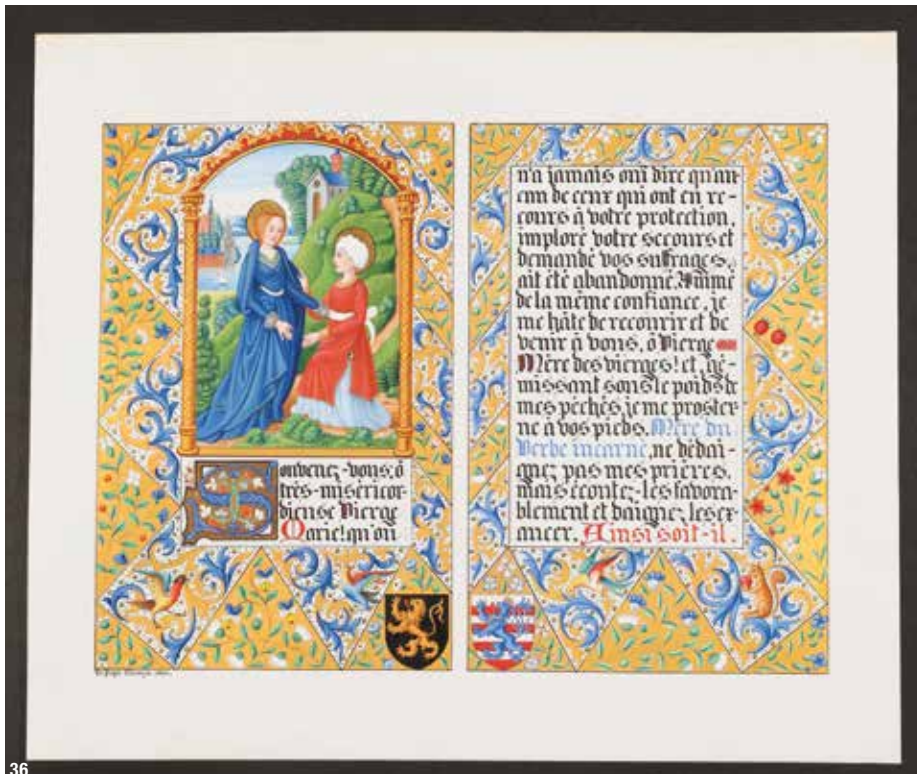 Souvenez-vous, ô
très-miséricor
dieuse Vierge
Marie! qu'on
n'a jamais ouï dire qu'au-
cun de ceux qui ont eu re-
cours à votre protection,
imploré votre secours et
demandé vos suffrages,
ait été abandonné. Animé
de la même confiance, je
me hâte de recourir et de
venir à vous, ô Vierge
Mère des vierges! et, gé-
missant sous le poids de
mes péchés, je me proster
ne à vos pieds. Mère du
Verbe incarné, ne dédai-
gnez pas mes prières,
mais écoutez-les favora-
blement et daignez les ex-
aucer. Ainsi soit-il.
36